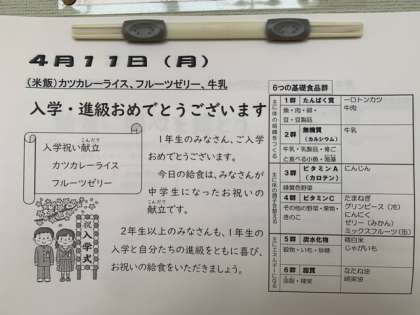 4月11日(月)
(米飯)カツカレーライス、フルーツゼリー、牛乳
入学・進級おめでとうございます
入学祝い献立
こんだて
カツカレーライス
フルーツゼリー
祝入学式
1年生のみなさん、ご入学
おめでとうございます。
今日の給食は、みなさんが
中学生になったお祝いの
こんだて
献立です。
2年生以上のみなさんも、1年生の
入学と自分たちの進級をともに喜び、
お祝いの給食をいただきましょう。
6つの基礎食品群
主に体の組織をつくる
1群 たんぱく質
魚・肉・卵・
豆・豆製品
一口トンカツ
牛肉
2群 無機質
(カルシウム)
牛乳・乳製品・骨ご
と食べる小魚・海藻
牛乳
主に体の調子を整える
3群 ビタミンA
(カロテン)
緑黄色野菜
にんじん
4群 ビタミンC
その他の野菜・果物・
きのこ
たまねぎ
グリンピース(冷)
にんにく
ゼリー(みかん)
ミックスフルーツ(缶)
主にエネルギーになる
5群 炭水化物
穀物・いも・砂糖
精白米
じゃがいも
6群 脂質
油脂・種実
なたね油
綿実油